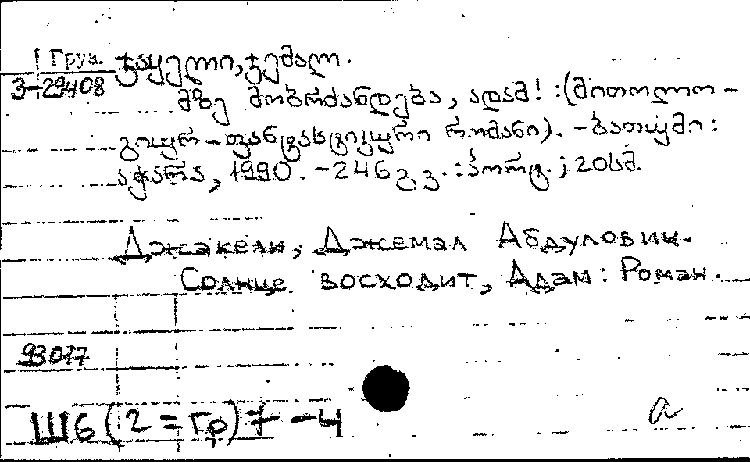 Груз. ჯაყელი, ჯემალ.
3-29408
მზე მობრძანდება, ადამ! : (მითოლო-
გიურ-ფანტასტიკური რომანი). - ბათუმი :
აჭარა, 1990. - 246 გვ. : პორტ. ; 20სმ.
Джакели, Джемал Абдулович.
Солнце восходит, Адам: Роман.
93077
Ш6(2=Гр)7-4
а